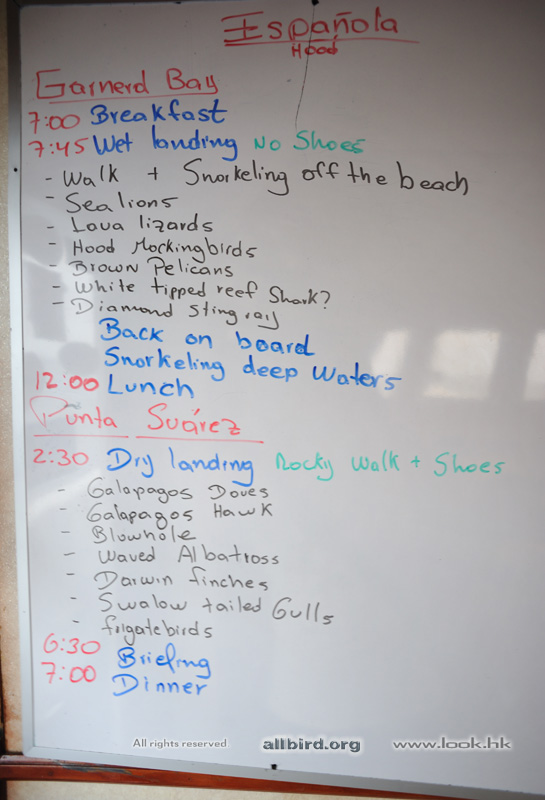 Española
Hood
Garnerd Bay
7:00 Breakfast
7:45 Wet landing No Shoes
- Walk + Snorkeling off the beach
- Sea lions
- Lava lizards
- Hood Mockingbirds
- Brown Pelicans
- White tipped reef Shark?
- Diamond Sting ray
Back on board
Snorkeling deep Waters
12:00 Lunch
Punta Suárez
2:30 Dry landing Rocky Walk + Shoes
- Galapagos Doves
- Galapagos Hawk
- Blowhole
- Waved Albatross
- Darwin finches
- Swalow tailed Gulls
- frigatebirds
6:30 Briefing
7:00 Dinner
All rights reserved. allbird.org www.look.hk